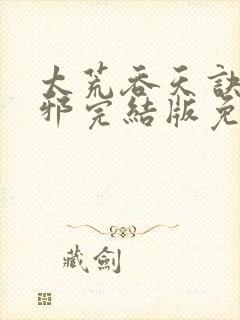 大荒吞天訣
邪完結版免
藏劍